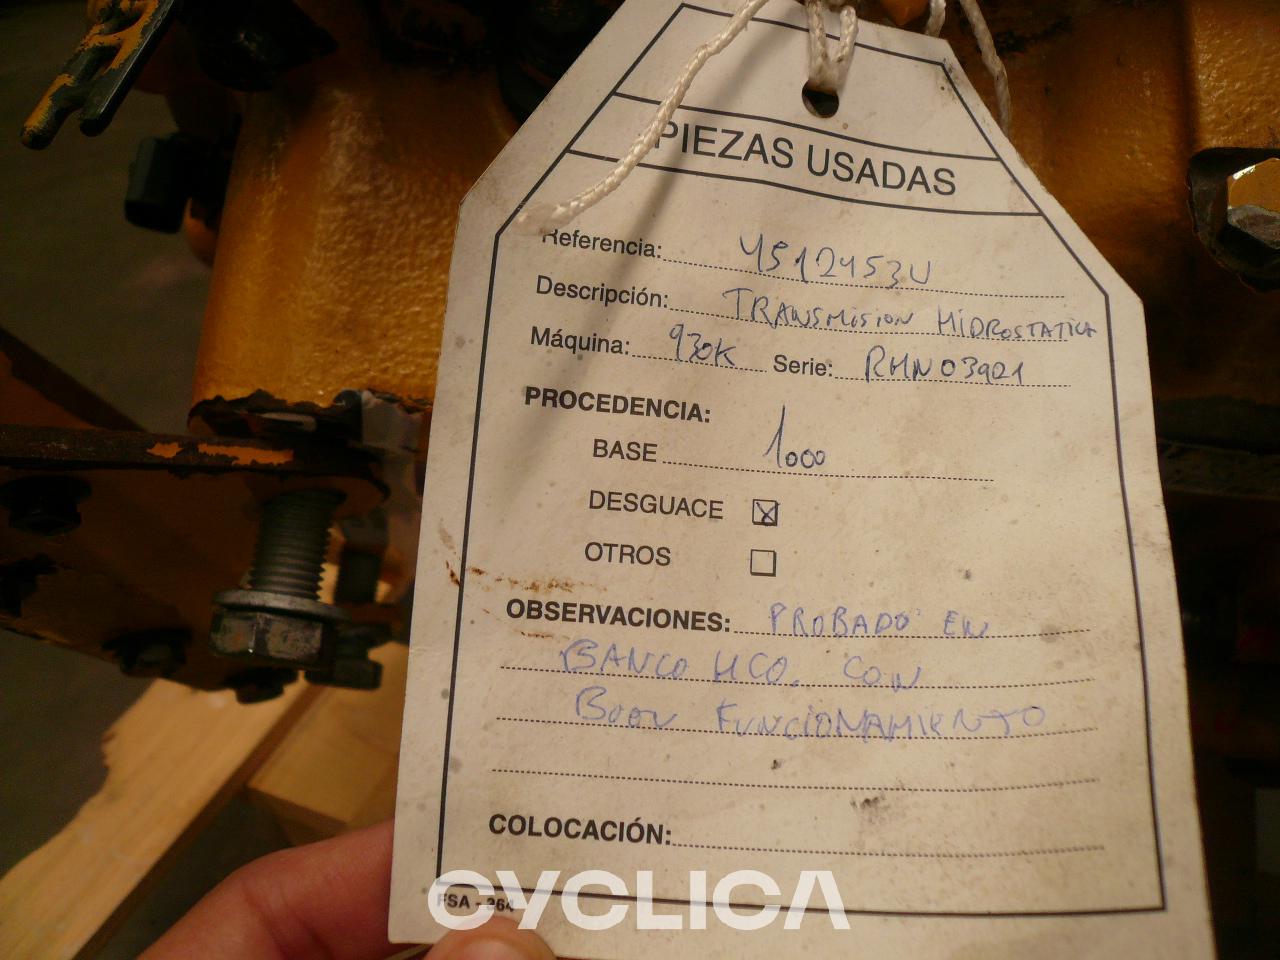 PIEZAS USADAS
Referencia: 4512453U
Descripción: TRANSMISION HIDROSTATICA
Máquina: 930K Serie: RHN03901
PROCEDENCIA:
BASE 1000
DESGUACE ☒
OTROS ☐
OBSERVACIONES: PROBADO EN
BANCO HCO. CON
BUEN FUNCIONAMIENTO
COLOCACIÓN:
FSA - 264
CYCLICA